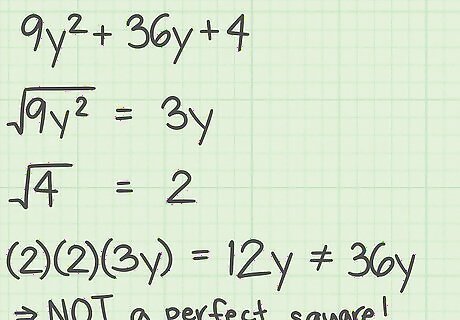 9y² + 36y + 4
√9y² = 3y
√4 = 2
(2)(2)(3y) = 12y ≠ 36y
⇒ NOT a perfect square!